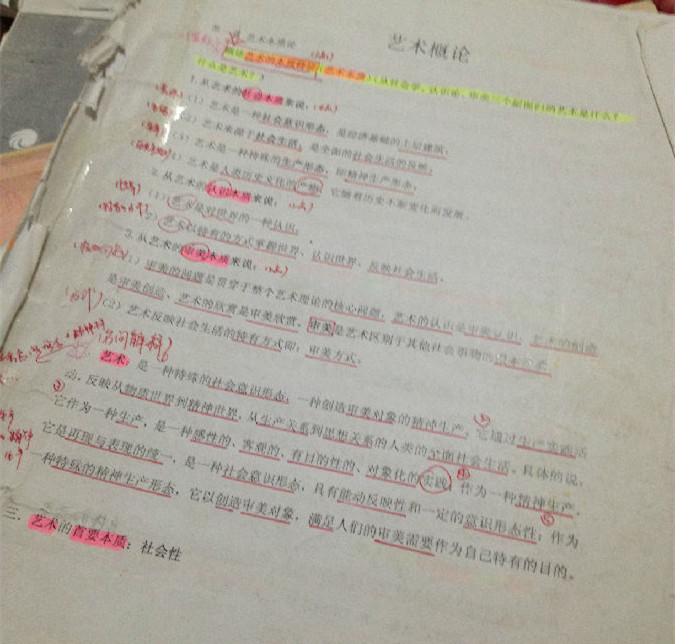 艺术概论
艺术本质论
概述艺术的本质性质(艺术本源)(从社会学、认识论、审美三个层面归纳艺术是什么?
什么是艺术?)
1.从艺术的社会本质来说:
(1)艺术是一种社会意识形态,是经济基础的上层建筑;
(2)艺术来源于社会生活,是全面的社会生活的反映;
(3)艺术是一种特殊的生产形态,即精神生产形态;
艺术是人类历史文化的产物,它随着历史不断变化而发展。
2.从艺术的认识本质来说:
(1)艺术是对世界的一种认识;
艺术以特有的方式掌握世界、认识世界、反映社会生活。
3.从艺术的审美本质来说:
(1)审美的问题是贯穿于整个艺术理论的核心问题,艺术的认识是审美认识,艺术的创造
是审美创造,艺术的欣赏是审美欣赏,审美是艺术区别于其他社会事物的
(2)艺术反映社会生活的特有方式即:审美方式。
(名词解释)
艺术:是一种特殊的社会意识形态,一种创造审美对象的精神生产,它通过生产实践活
动,反映从物质世界到精神世界,从生产关系到思想关系的人类的全面社会生活。具体的说,
它作为一种生产,是一种感性的、客观的、有目的性的、对象化的实践;作为一种精神生产,
它是再现与表现的统一,是一种社会意识形态,具有能动反映性和一定的意识形态性;作为
一种特殊的精神生产形态,它以创造审美对象,满足人们的审美需要作为自己特有的目的。
三.艺术的首要本质:社会性